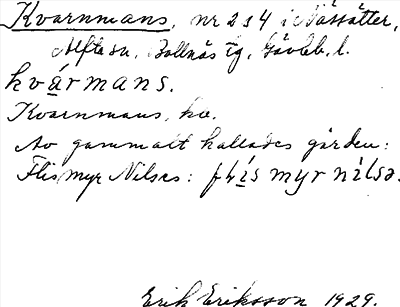 Kvarnmans, nr 2 o 4 i Nässätter,
Alfta sn, Bollnäs tg, Gävleb. l.
hvármans.
Kvarnmans, hv.
Av gammalt kallades gården:
Flis myr Nilses: flís myr nílsa.
Erik Eriksson 1929.